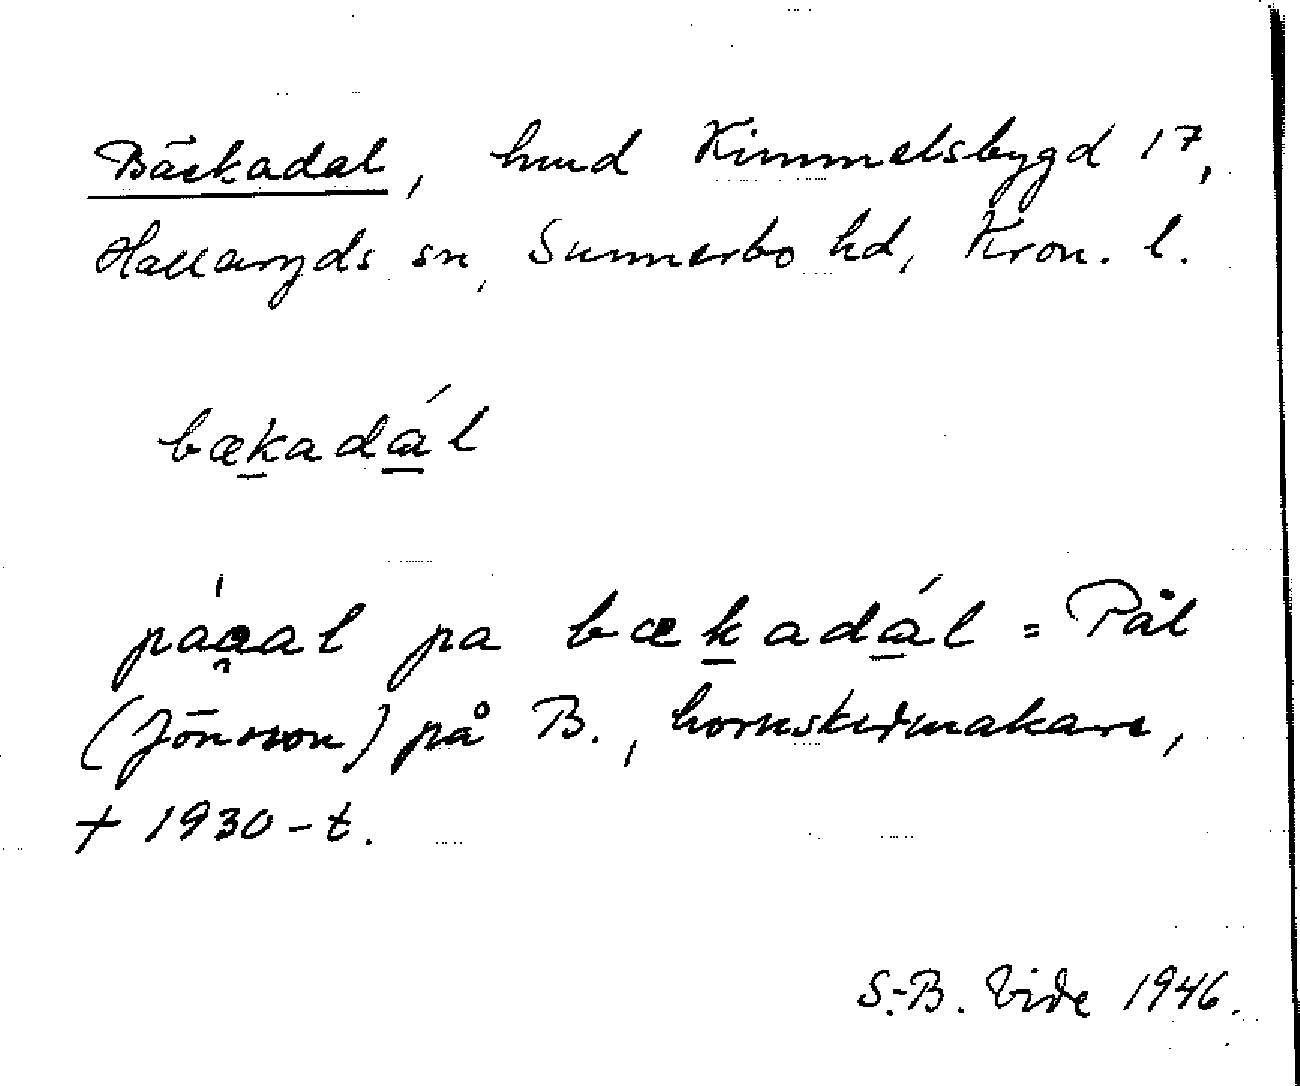 Bäckadal, hmd Kimmelsbygd 17,
Hallaryds sn, Sunnerbo hd, Kron. l.
bækadál
páaal pa bækadál = Pål
(Jönsson) på B., hornskedmakare,
+ 1930-t.
S.-B. Vide 1946.